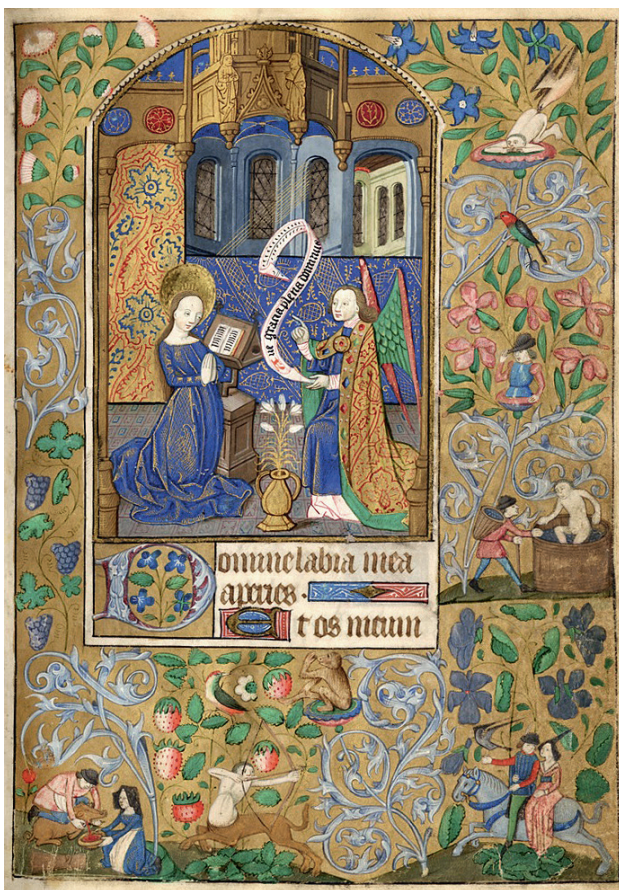 ue gracia plena dominus
Domine labia mea
aperies ·
Et os meum